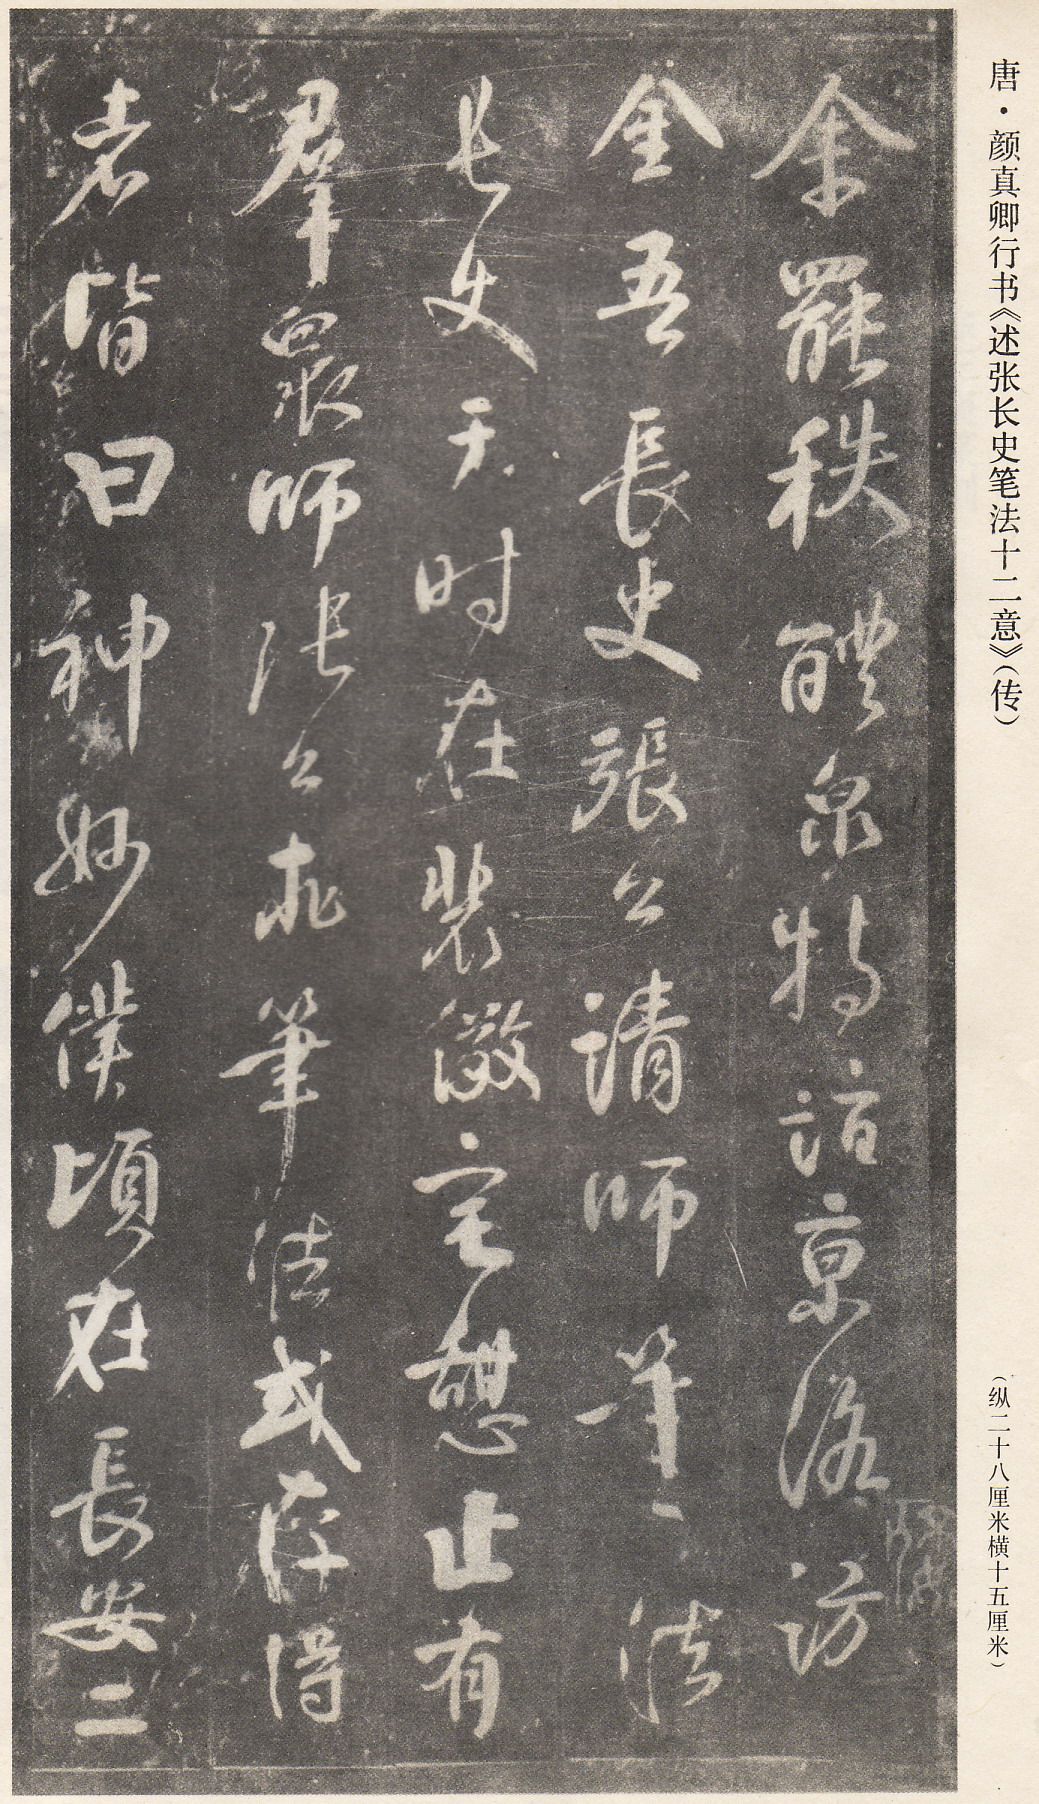 唐·颜真卿行书《述张长史笔法十二意》（传）
（纵二十八厘米横十五厘米）
余罷秩醴泉特詣京洛訪
金吾長史張公請師筆法
長史于时在裴儆宅憩止有
羣衆师張公求筆法或存得
者皆曰神妙僕頃在長安二